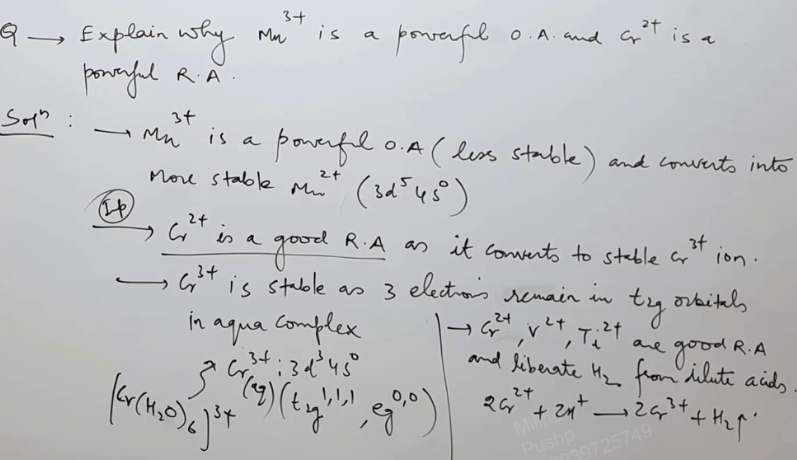 Q → Explain why Mn³⁺ is a powerful O.A. and Cr²⁺ is a
powerful R.A.
Solⁿ : → Mn³⁺ is a powerful O.A (less stable) and converts into
More stable Mn²⁺ (3d⁵4s⁰)
→ Cr²⁺ is a good R.A as it converts to stable Cr³⁺ ion.
→ Cr³⁺ is stable as 3 electrons remain in t₂g orbitals
in aqua complex
Cr³⁺(aq) : 3d³4s⁰
[Cr(H₂O)₆]³⁺ (t₂g¹,¹,¹, eg⁰,⁰)
→ Cr²⁺, V²⁺, Ti²⁺ are good R.A
and liberate H₂ from dilute acids.
2Cr²⁺ + 2H⁺ → 2Cr³⁺ + H₂↑
Pushp